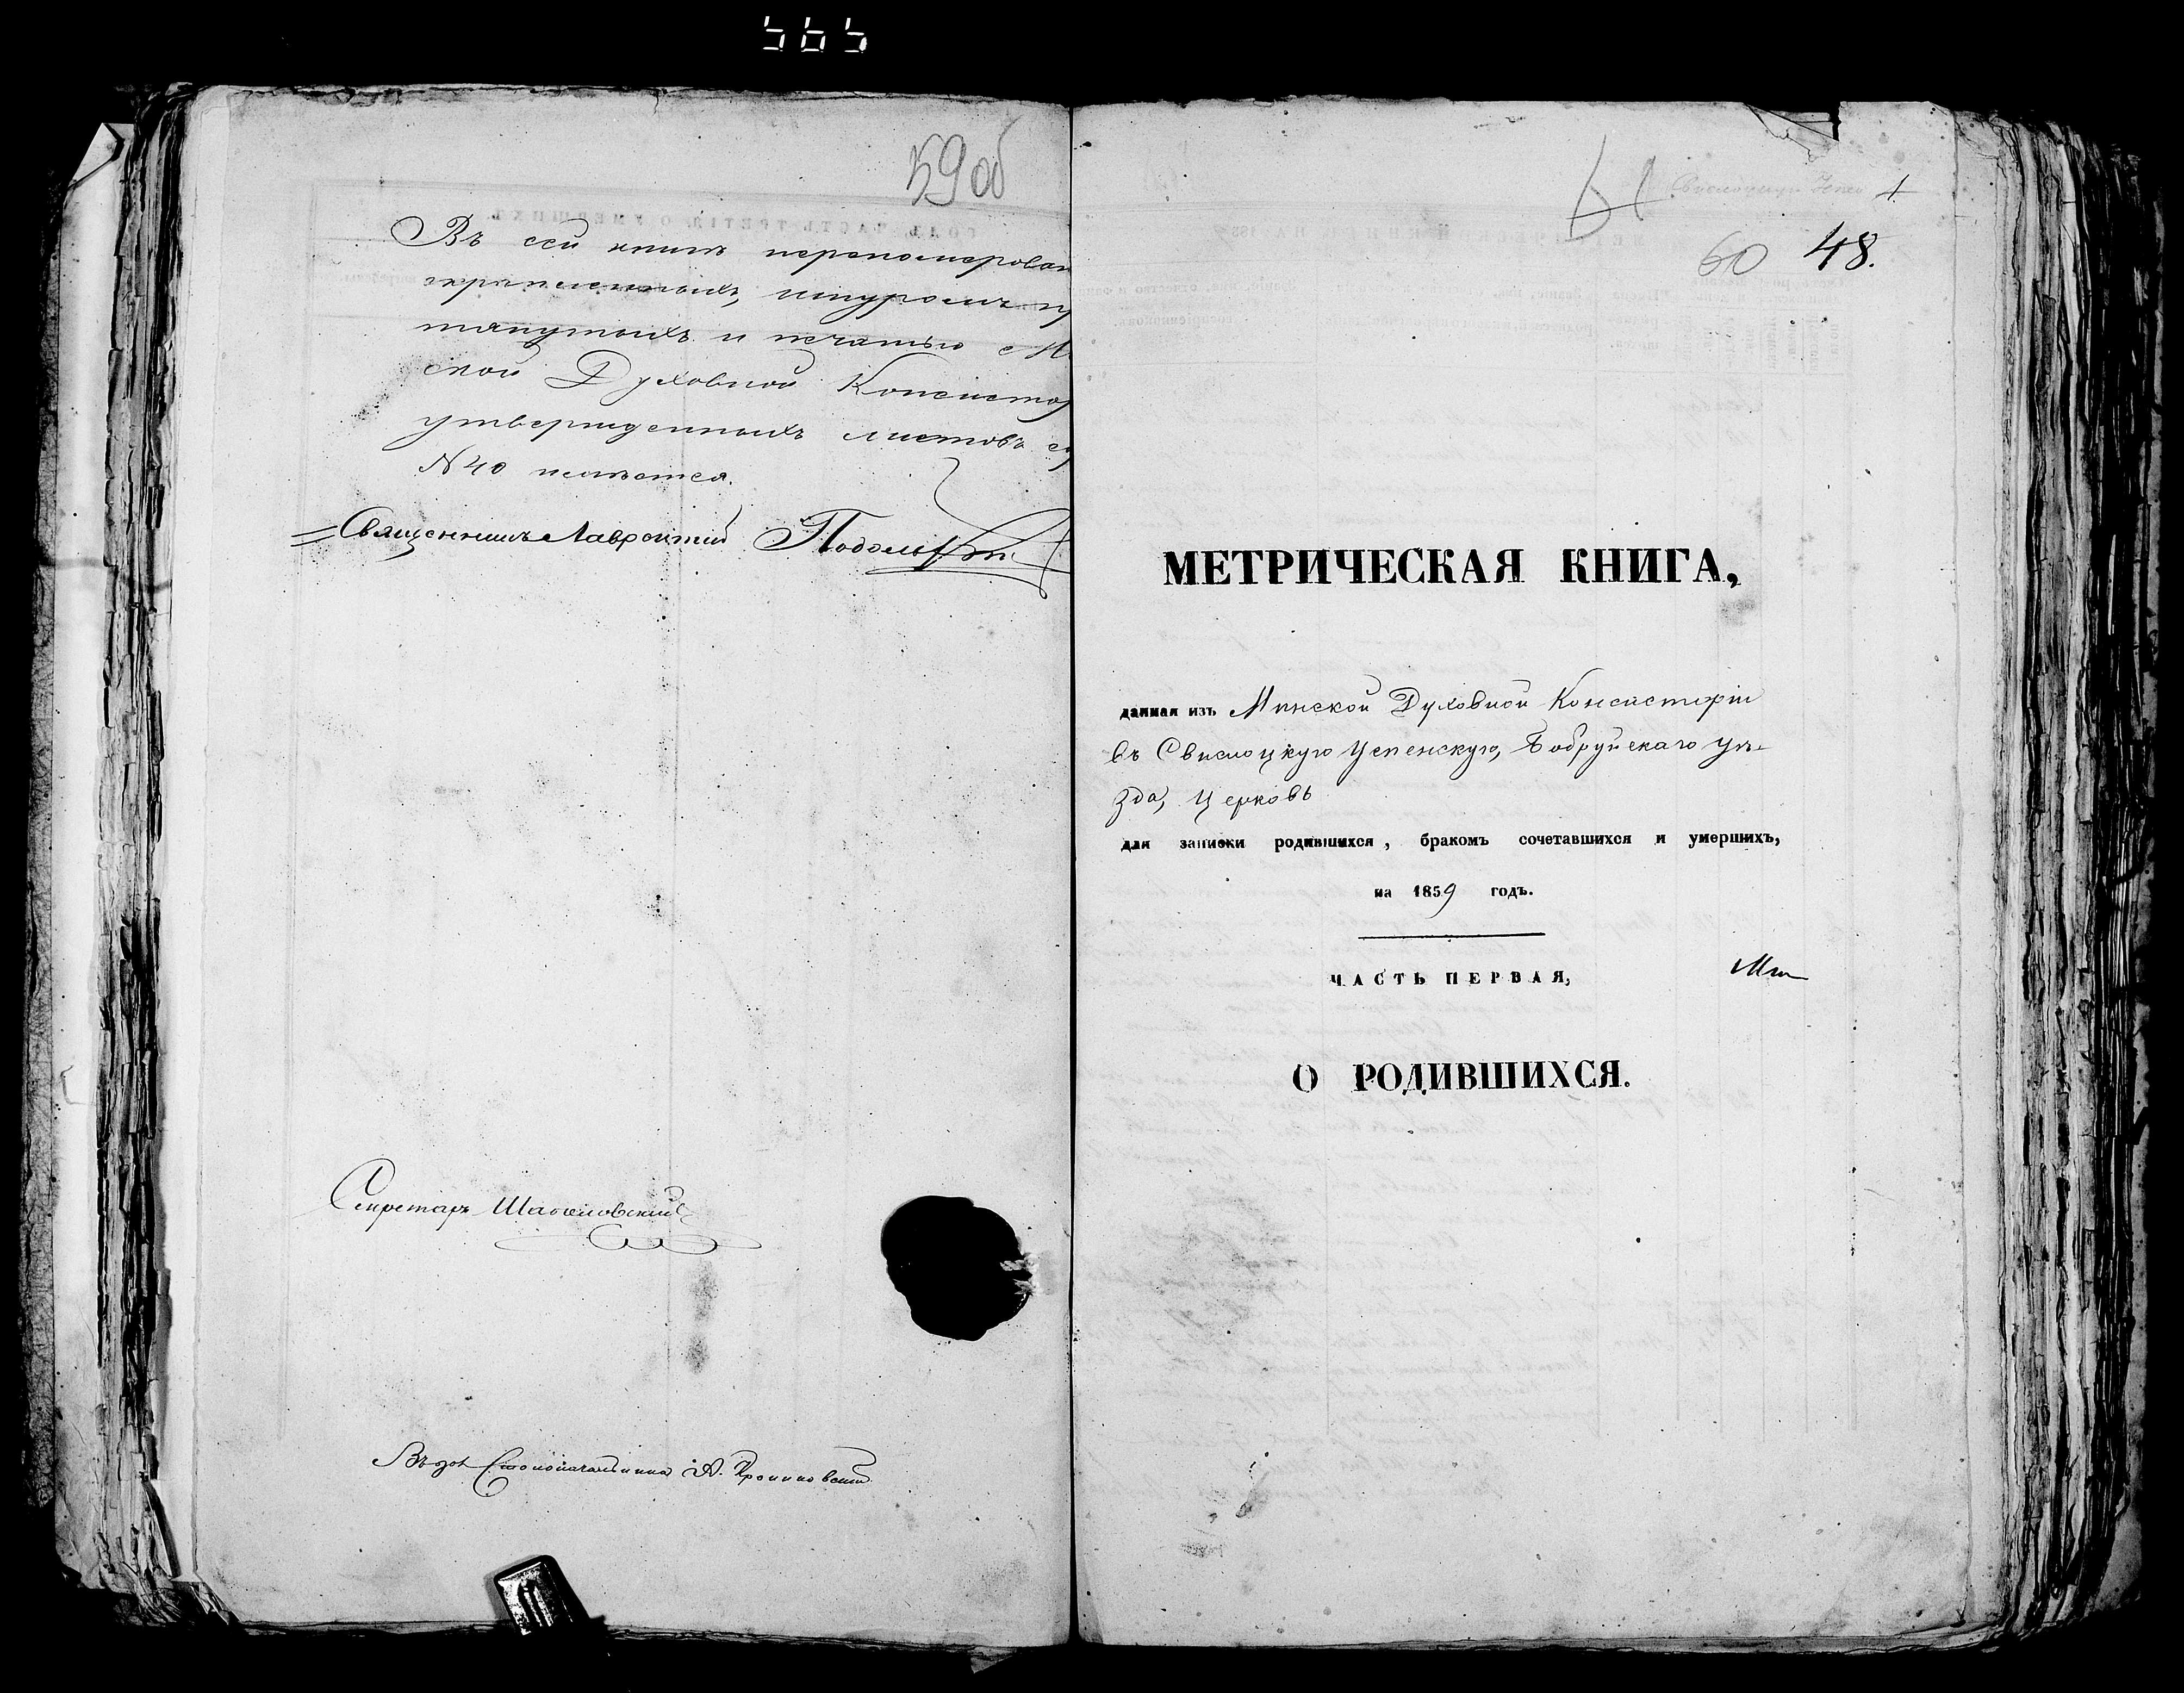 59 об
Въ сей книгѣ перепомерован
скрѣпленныхъ, шнуромъ пр
тянутыхъ и печатью М
ской Духовной Консистор
утвержденныхъ листовъ со
N 40 имѣется.
Священникъ Лаврентій
Секретарь
Въ дол. Столоначальника А.
1
60 48.
МЕТРИЧЕСКАЯ КНИГА,
данная изъ Минской Духовной Консисторіи
въ Свислоцкую Успенскую, Бобруйскаго уѣ-
зда, Церковь
для записки родившихся, бракомъ сочетавшихся и умершихъ,
на 1859 годъ.
ЧАСТЬ ПЕРВАЯ,
О РОДИВШИХСЯ.